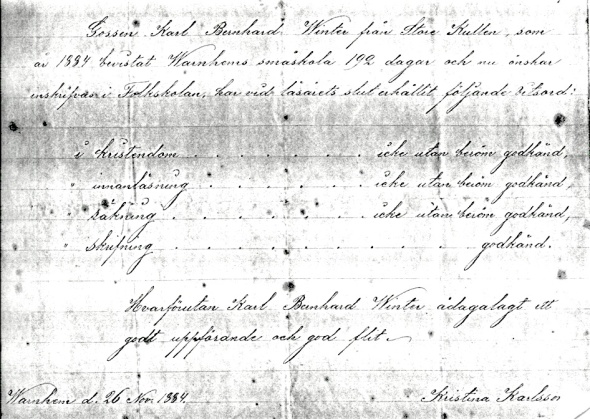 Gossen Karl Bernhard Winter från Store Kullen, som
år 1884 bevistat Warnhems småskola 192 dagar och nu önskar
inskrifvas i Folkskolan, har vid läsårets slut erhållit följande vitsord:
i kristendom . . . . . . . . . icke utan beröm godkänd,
" innanläsning . . . . . . . . . icke utan beröm godkänd
" räkning . . . . . . . . . . icke utan beröm godkänd,
" skrifning . . . . . . . . . . . . . godkänd.
Hvarförutan Karl Bernhard Winter ådagalagt ett
godt uppförande och god flit.
Warnhem d. 26 Nov. 1884.
Kristina Karlsson